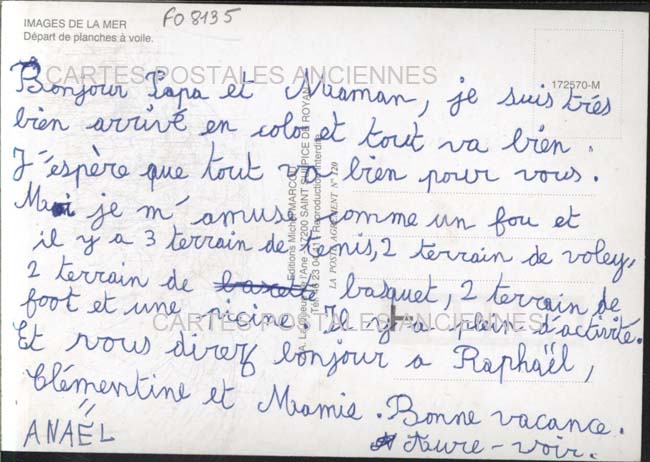 IMAGES DE LA MER
Départ de planches à voile.
FO 8135
172570-M
CARTES POSTALES ANCIENNES
Bonjour Papa et Maman, je suis trés
bien arrivé en colo et tout va bien.
J'espère que tout va bien pour vous.
Moi je m'amuse comme un fou et
il y a 3 terrain de tenis, 2 terrain de voley,
2 terrain de basquet, 2 terrain de
foot et une picine. Il y a plein d'activité.
CARTES POSTALES ANCIENNES
Et vous direz bonjour a Raphaël,
Clémentine et Mamie. Bonne vacance.
ANAËL
Aure-voir.
Editions Michel MARCOU
17200 SAINT SULPICE DE ROYAN
Reproduction interdite
LA POSTE AGREMENT N° 120